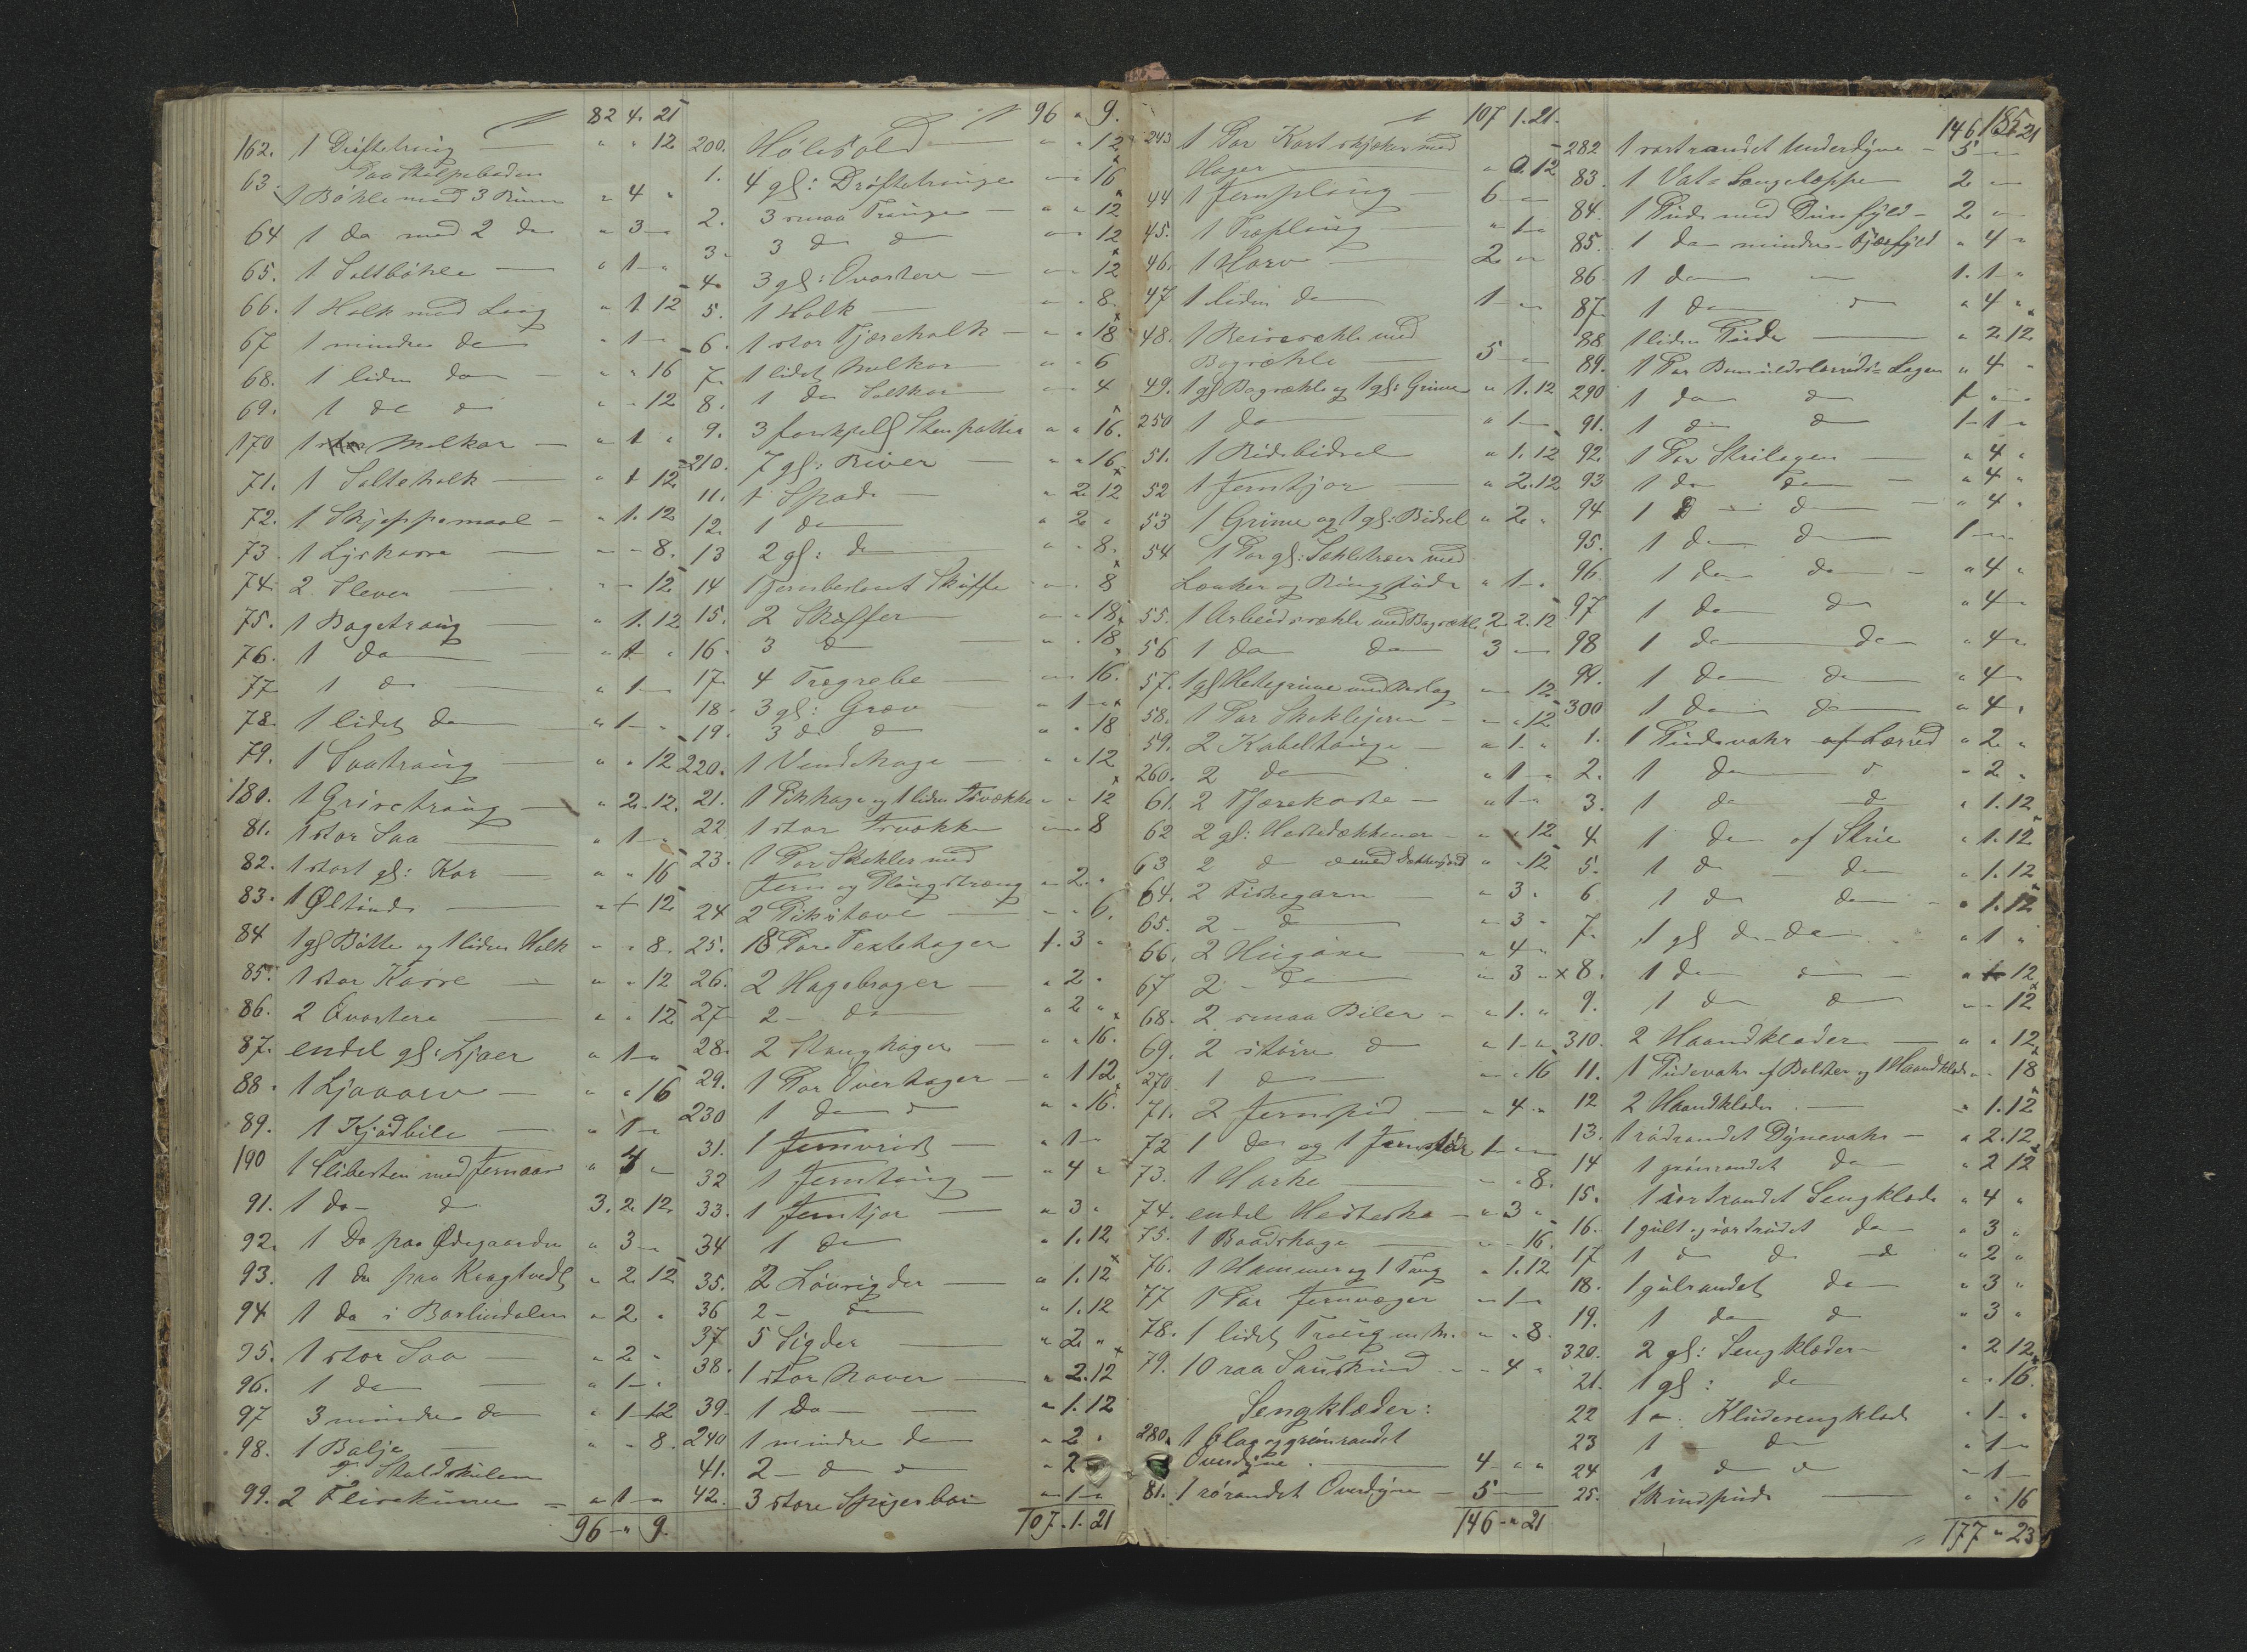 82 4. 21
162. 1 Drøftetroug — " " 12
Paa Stolpeboden
63. 1 Bøhle med 3 Rum " 4 "
64 1 do med 2 do " 3 "
65. 1 Saltbøhle — " 1 "
66. 1 Holk med Laag " 1 12
67 1 mindre do " 1 "
68. 1 liden do — " " 16
69. 1 do do " " 12
170 1 Melkar — " 1 "
71. 1 Salteholk — " 1 12
72. 1 Skjeppemaal — " 1. 12
73. 1 Lyskasse — " " 8.
74. 2 Slever — " " 12
75. 1 Bagetroug — " 1. 12
76. 1 do — " 1 "
77 1 do " 1 "
78. 1 lidet do " 1 "
79. 1 Saatroug — " " 12
180. 1 Grisetroug — " 2. 12.
81. 1 stor Saa — " 1 "
82. 1 stort gl: Kar — " " 16
83. 1 Øltinde — " 1 12
84 1 gl Bøtte og 1 liden Holk " " 8.
85. 1 stor Kasse — " " 12
86. 2 Qvastere — " " 12
87. endel gl: Ljaer " 1 "
88. 1 Ljaaorv — " " 16
89. 1 Kjødbile — " 1 "
190 1 Slibesten med Jernaas " 4 "
91. 1 do — do 3. 2. 12.
92. 1 Do paa Ødegaarden " 3 "
93. 1 do paa Kragtvedt " 2 12
94 1 do i Barlindalen " 2 "
95. 1 stor Saa — " 2 "
96. 1 do — " 1 "
97 3 mindre do " 1 12
98. 1 Balje — " " 8.
99. 2 — " 1 "
96 " 9.
96 " 9.
200. — " " 12
1. 4 gl: Drøftetrouge " " 16
2. 3 smaa Trouge — " " 12
3. 3 do do " " 12
4. 3 gl: Qvastere — " " 12
5. 1 Holk — " " 8.
6. 1 stor Tjæreholk — " " 18
7. 1 lidet Melkar " " 6
8. 1 do Saltkar " " 4
9. 3 forskjell Stenpotter " " 16.
210. 7 gl: River — " " 16
11. 1 Spade — " 2 12
12. 1 do " 2 "
13 2 gl: do " " 8.
14 1 Jernbeslaaet Skuffe " " 8
15. 2 Skuffer " " 18
16. 3 do — " " 18
17. 4 Trægrebe — " " 16.
18. 3 gl: Grev — " 1 "
19. 3 do do " " 18
220. 1 Vendehage — " " 12
21. 1 Pikhage og 1 liden " " 12
22 1 stor " " 8
23. 1 Par Skekler med
Jern og Plougstræng " 2 "
24 2 Pikstave — " " 6.
25. 18 Par Textehager 1. 3 "
26. 2 Hagebrager — " 2 "
27 2 — do " 2 "
28. 2 Stanghager — " " 16.
29. 1 Par Øverhager — " 1 12
230 1 do do " " 16.
31. 1 Jernvrid — " 1 "
32 1 Jerntong — " 4 "
33. 1 Jerntjor — " 3 "
34 1 do " 1. 12
35. 2 Løvsigder — " 1. 12
36 2 — do " 1. 12
37 5 Sigder — " 2 "
38. 1 stor Naver — " 2. 12
39. 1 Do — " 1. 12
240 1 mindre do " 2 "
41. 2 — do do " 2
42. 3 store Spigerbor " 1 "
107. 1. 21
107 1. 21.
243 1 Par Kart skjæker med
Hager " 0. 12
44 1 Jernploug 6 "
45. 1 Træploug " 1 "
46. 1 Harv — 2 "
47 1 liden do 1 "
48. 1 Reisesæhle med
Bogsæhle 5 "
49. 1 gl Bagsæhle og 1 gl: Grime " 1. 12
250 1 do " 1 "
51. 1 Ridebidsel " 1. 12
52 1 Jerntjor — " 2. 12
53 1 Grime og 1 gl: Bidsel " 2 "
54 1 Par gl: Sæhletræer med
Lænker og Ringpude " 1 "
55. 1 Arbeidssæhle med Bagsæhle 2. 2. 12
56 1 do do 3 "
57. 1 gl Hestegrime med Beslag " " 12
58. 1 Par Skoklejern — " " 12
59. 2 Kabeltouge — " 1 "
260. 2 do — " 1 "
61. 2 Tjærekoste — " 1 "
62 2 gl: Hestedækkener — " " 12
63 2 do do med Dækkenjord " " 12
64. 2 Fiskegarn " 3 "
65. 2 — do — " 3 "
66. 2 Hugøxe — " 4 "
67 2 — do — " 3 "
68. 2 smaa Biler — " 1 "
69. 2 større do " 1 "
270 1 do — " " 16
71. 2 Jernspid — " 4 "
72 1 do og 1 1 "
73. 1 Harke — " " 8.
74. endel Hestesko — " 3 "
75. 1 Baadshage — " " 16.
76. 1 Hammer og 1 Tang " 1. 12
77 1 Par Jernvæger " 1 "
78. 1 lidet Troug m. m. " " 8.
79. 10 raa Saueskind " 4 "
Sengklæder:
280. 1 blaa og grønrandet
Overdyne — 4 " "
81. 1 rørandet Overdyne — 5
146 " 21
185.
146 " 21
282 1 sortrandet Underdyne — 5
83. 1 Vat-Sengetæppe 2 "
84. 1 Pude med Duunfyld — 2 "
85. 1 do mindre — Fjærfyld " 4 "
86. 1 do — 1. 1 "
87. 1 do do " 4 "
88 1 liden Pude — " 2 12
89. 1 Par Bomuldslærreds-Lagen " 4 "
290 1 do do 1 "
91. 1 do do 1 1 "
92. 1 Par Strilagen — " 4 "
93 1 do do — " 4 "
94 1 do — " 4 "
95. 1 do do 1 "
96. 1 do do — " 4 "
97 1 do do " 4 "
98 1 do do " 4 "
99. 1 do do " 4 "
300 1 do do " 4 "
1. 1 Pudevahr af Lærred " 2 "
2. 1 do do " 2 "
3. 1 do do " 1. 12
4 1 do af Strie " 1. 12
5. 1 do — do " 1. 12
6 1 do do " 1. 12
7. 1 gl do do " 1 "
8. 1 do do " " 12
9. 1 do do " " 12
310. 2 Haandklæder — " " 12
11. 1 Pudevahr af Bolster og 1 Haandklæde " " 18
12 2 Haandklæder — " 1. 12
13. 1 rødrandet Dynevahr — " 2. 12
14 1 grønrandet do " 2 12
15. 1 sortrandet Sengklæde " 4 "
16. 1 gult og sortrudet do " 3 "
17 1 do do do " 2 "
18. 1 gulrandet do " 3 "
19. 1 do do " 3 "
320. 2 gl: Sengklæder — " 2 12
21. 1 gl: do " " 16.
22 1 — Kludesengklæde " 1 "
23 1 — do " 1 "
24 1 do do " 1 "
25. Skindpude — " " 16
177 " 23